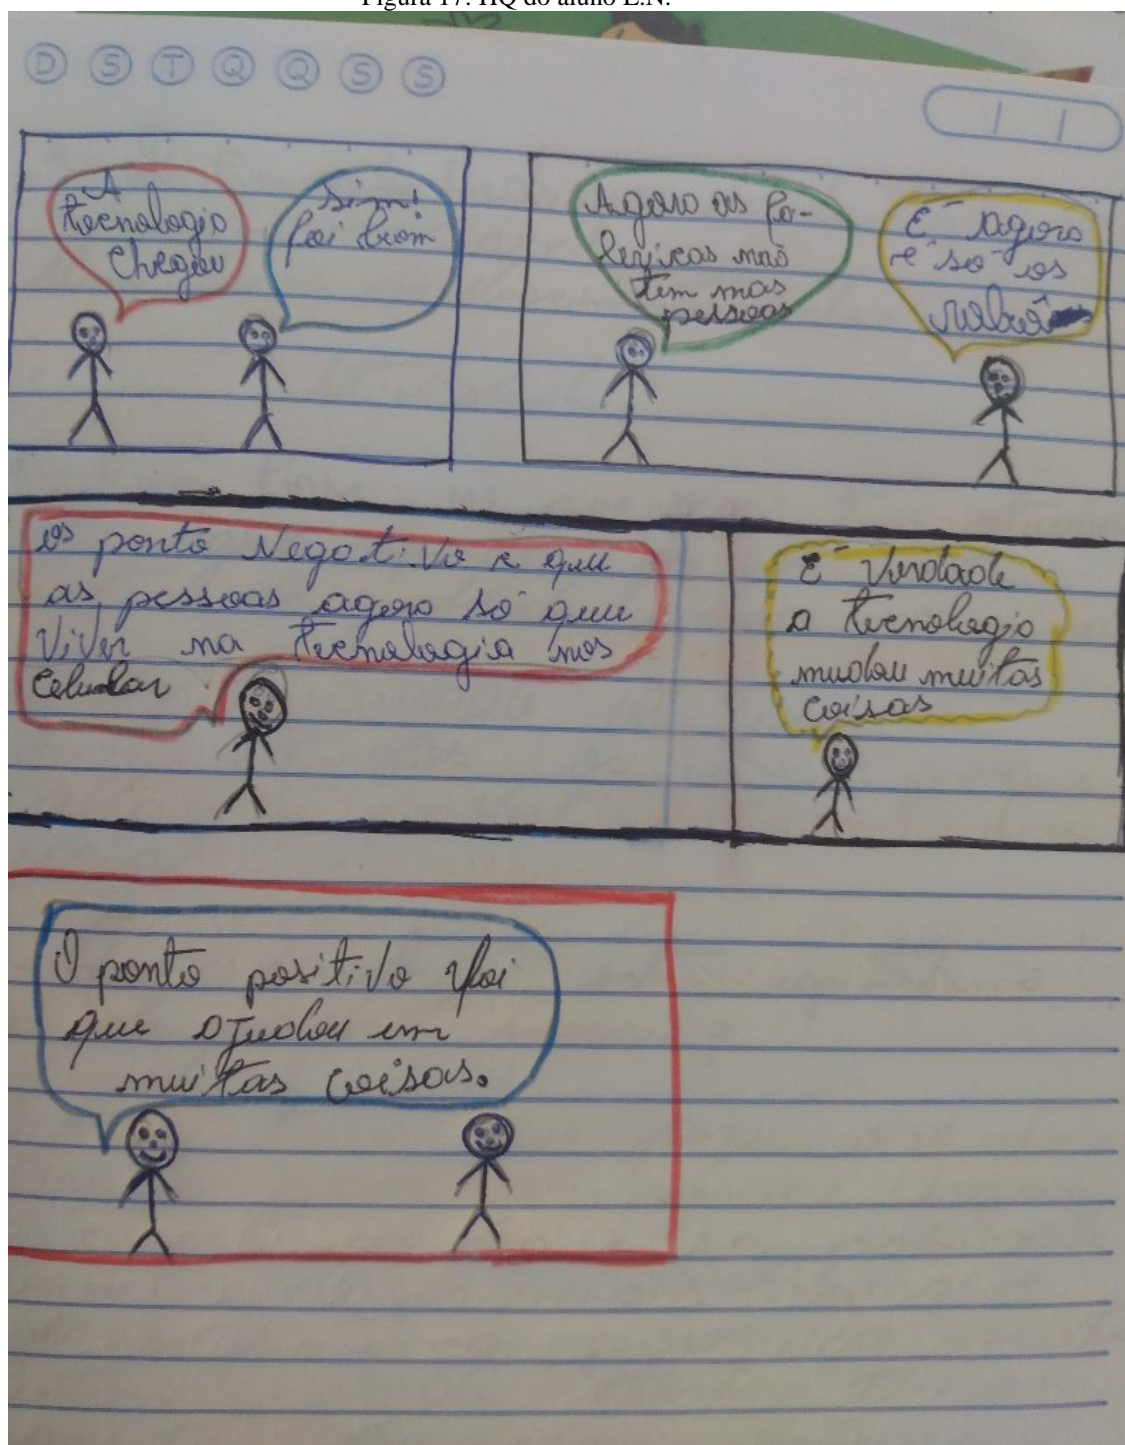 Figura 17: HQ do aluno E.N.
D S T Q Q S S
A
tecnologia
chegou
sim!
foi bom
Agora as fa-
bricas não
tem mas
pessoas
É agora
é só os
robô
os ponto Negativo e que
as pessoas agora só quer
viver na tecnologia nos
celular
É verdade
a tecnologia
mudou muitas
coisas
O ponto positivo foi
que ajudou em
muitas coisas.